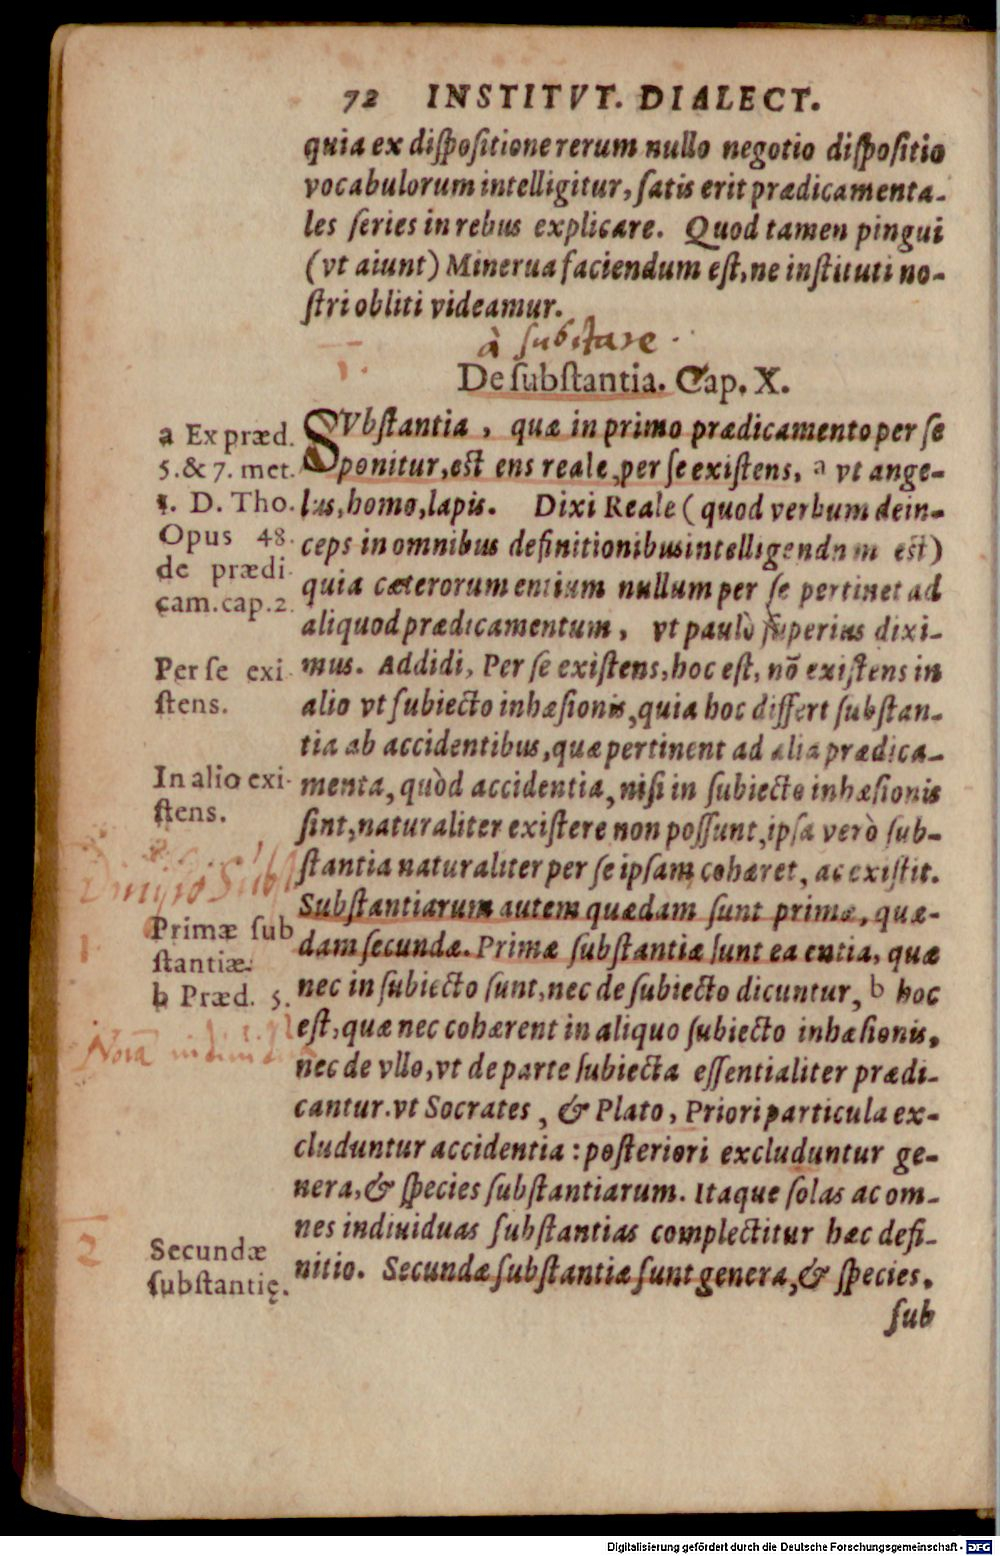 72 INSTITVT. DIALECT.
quia ex diſpoſitione rerum nullo negotio diſpoſitio
vocabulorum intelligitur, ſatis erit prædicamenta-
les ſeries in rebus explicare. Quod tamen pingui
(vt aiunt) Minerua faciendum eſt, ne inſtituti no-
ſtri obliti videamur.
à ſubstare
1.
De ſubſtantia. Cap. X.
a Ex præd.
5. & 7. met.
1. D. Tho.
Opus 48.
de prædi
cam. cap. 2.
SVbſtantia, quæ in primo prædicamento per ſe
ponitur, est ens reale, per ſe exiſtens, a vt ange-
lus, homo, lapis. Dixi Reale (quod verbum dein-
ceps in omnibus definitionibus intelligendum est)
quia cæterorum entium nullum per ſe pertinet ad
aliquod prædicamentum, vt paulò ſuperius dixi-
Per ſe exi
ſtens.
mus. Addidi, Per ſe exiſtens, hoc eſt, nō exiſtens in
alio vt ſubiecto inhæſionis, quia hoc differt ſubſtan-
tia ab accidentibus, quæ pertinent ad alia prædica-
In alio exi-
ſtens.
menta, quòd accidentia, niſi in ſubiecto inhæſionis
ſint, naturaliter exiſtere non poſſunt, ipſa verò ſub-
ſtantia naturaliter per ſe ipſam cohæret, ac exiſtit.
Diuiſio Subſt
Primæ ſub
ſtantiæ.
b Præd. 5.
1
Subſtantiarum autem quædam ſunt primæ, quæ-
dam ſecundæ. Primæ ſubſtantiæ ſunt ea entia, quæ
nec in ſubiecto ſunt, nec de ſubiecto dicuntur, b hoc
eſt, quæ nec cohærent in aliquo ſubiecto inhæſionis,
nec de vllo, vt de parte ſubiecta eſſentialiter prædi-
cantur. vt Socrates, & Plato, Priori particula ex-
cluduntur accidentia: poſteriori excluduntur ge-
nera, & ſpecies ſubſtantiarum. Itaque ſolas ac om-
nes indiuiduas ſubſtantias complectitur hæc defi-
2
Secundæ
ſubſtantię.
nitio. Secundæ ſubſtantiæ ſunt genera, & ſpecies,
ſub
Digitalisierung gefördert durch die Deutsche Forschungsgemeinschaft - DFG